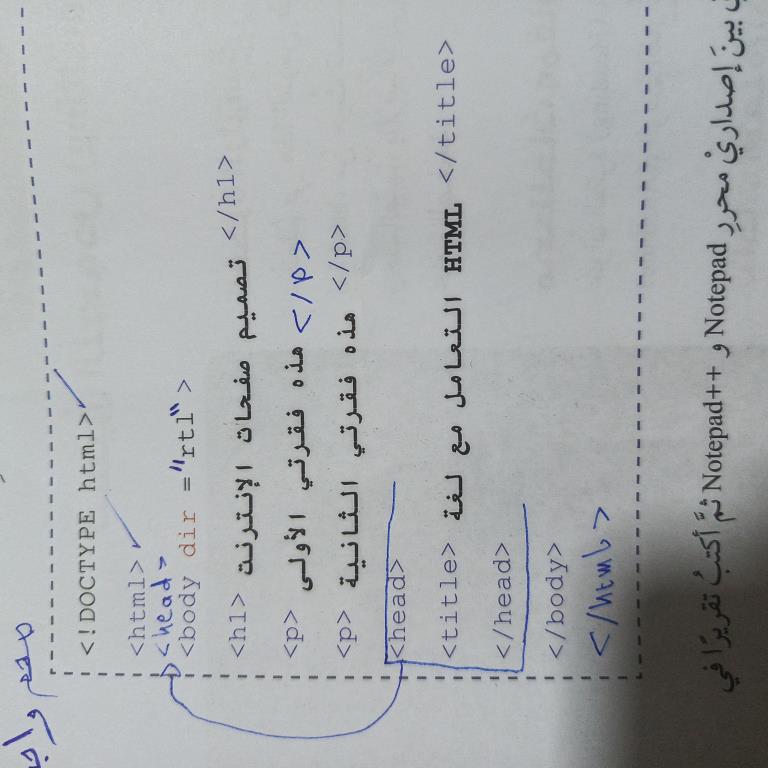 مهم واجب
<!DOCTYPE html>
<html>
<head>
<body dir ="rtl">
<h1> تصميم صفحات الإنترنت </h1>
<p> هذه فقرتي الأولى </p>
<p> هذه فقرتي الثانية </p>
<head>
<title> التعامل مع لغة HTML </title>
</head>
</body>
</html>
بينَ إصداريْ محررِ Notepad و Notepad++ ثمَّ أكتبُ تقريرًا في